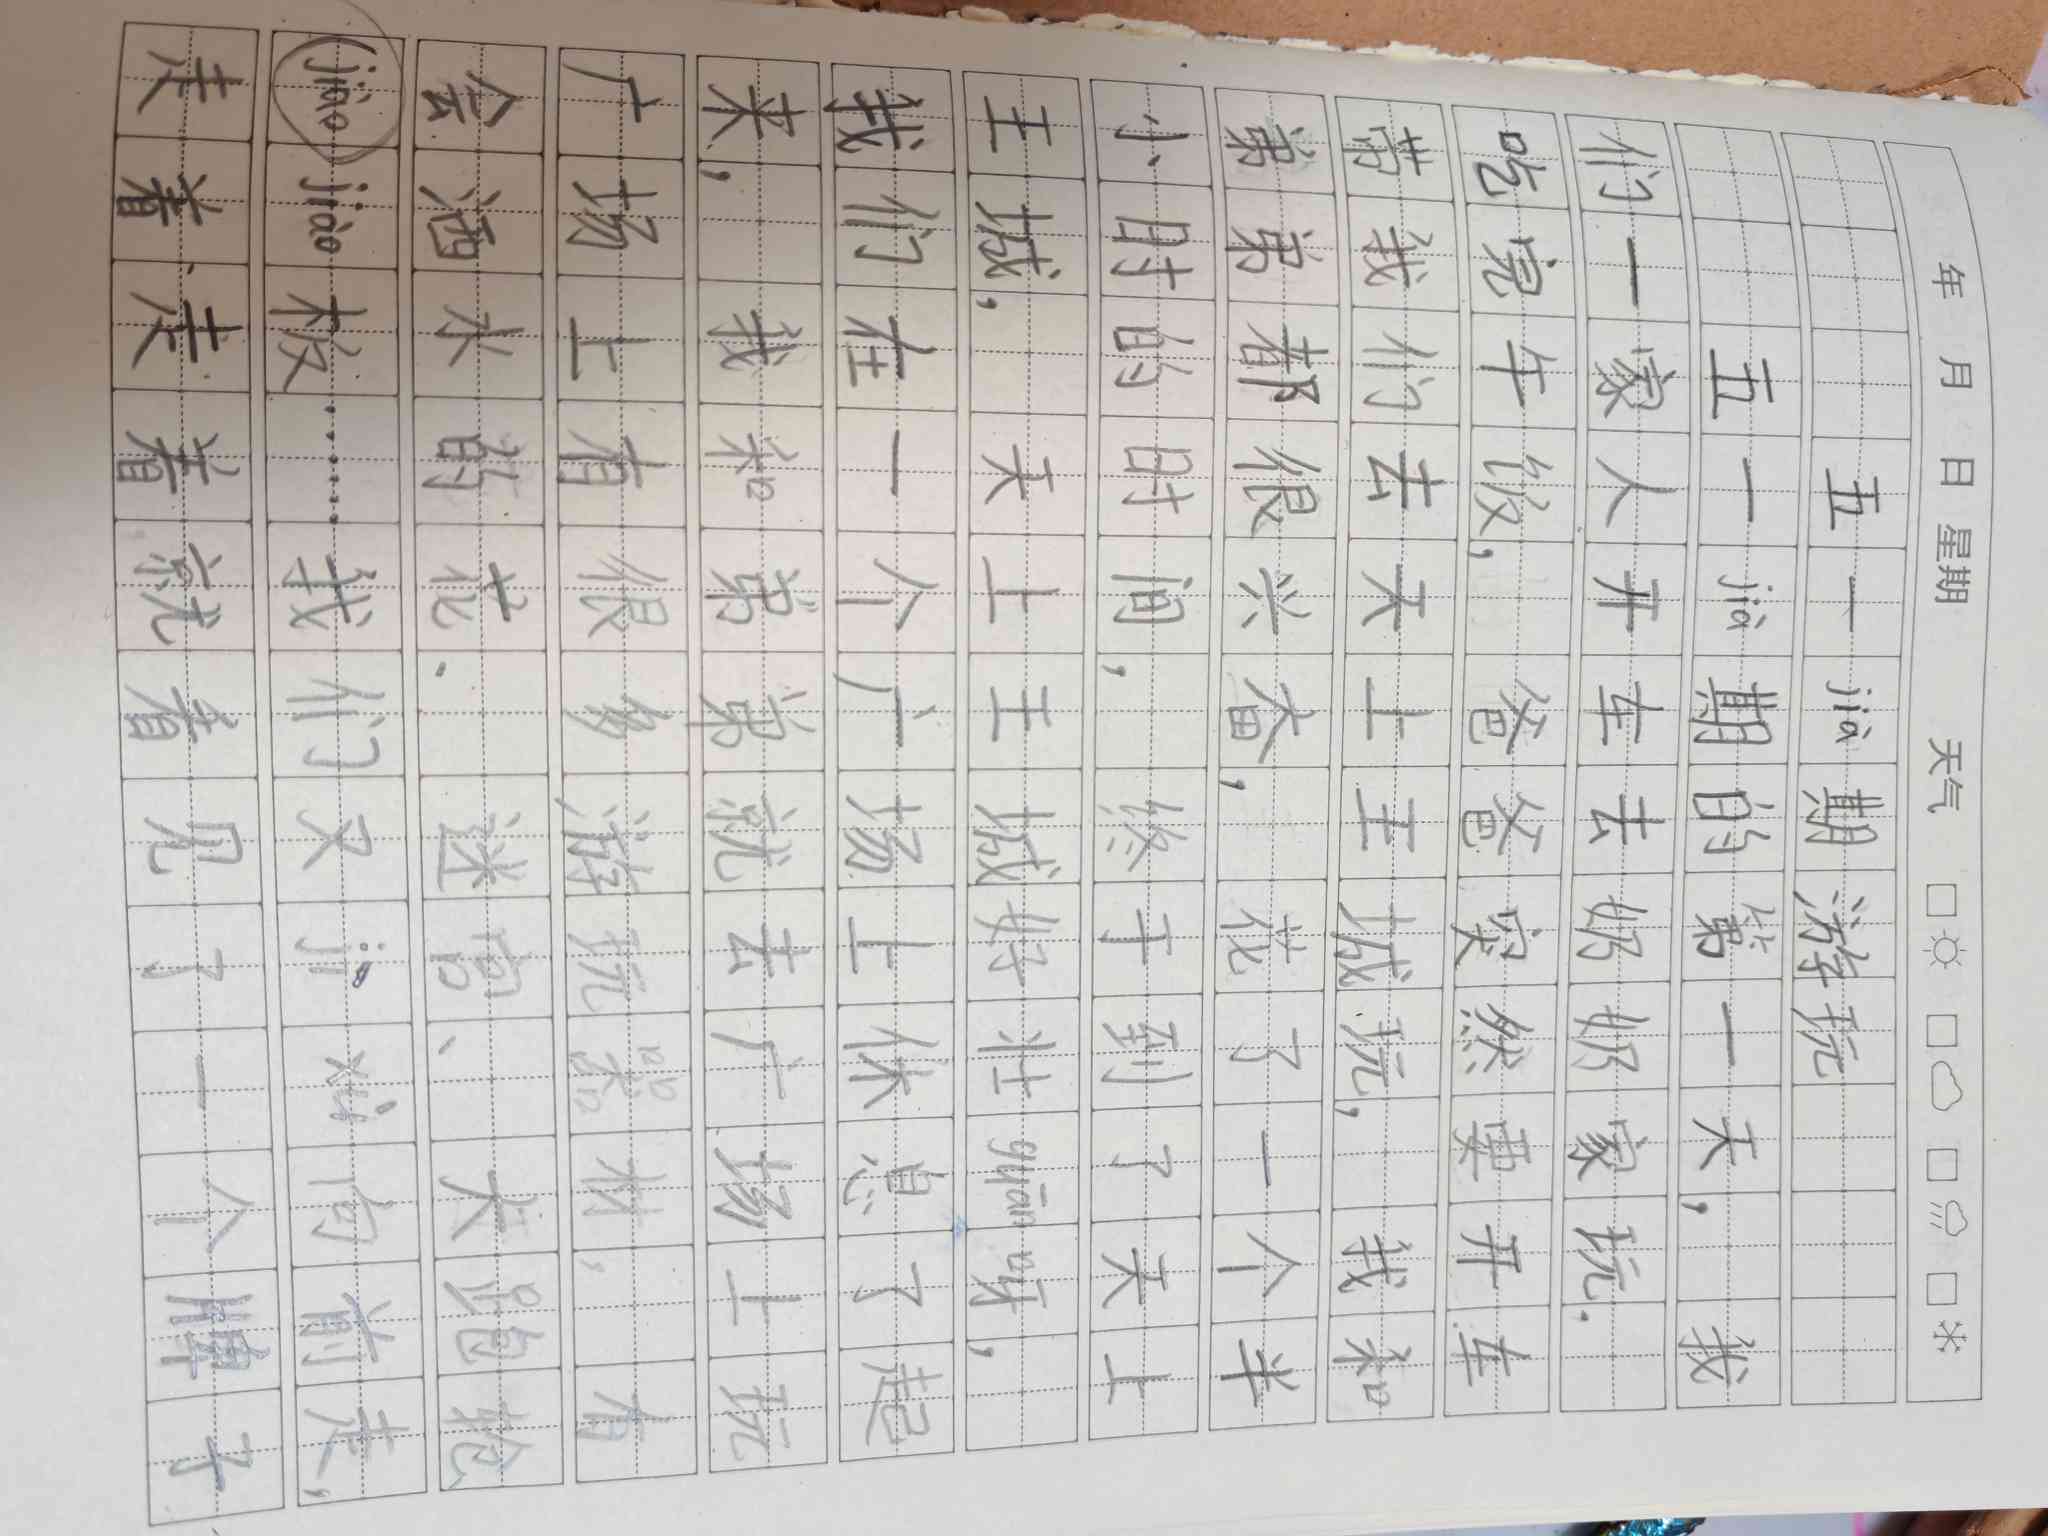 年 月 日 星期 天气
五一jià期游玩
五一jià期的第一天,我
们一家人开车去奶奶家玩.
吃完午饭,爸爸突然要开车
带我们去天上王城玩,我和
弟弟都很兴奋,花了一个半
小时的时间,终于到了天上
王城.天上王城好壮guān呀,
我们在一个广场上休息了起
来,我和弟弟就去广场上玩
广场上有很多游玩器材,有
会洒水的花.迷宫、大跑枪
jiào jiào板……我们又jì xù向前走,
走着走着就看见了一个牌子